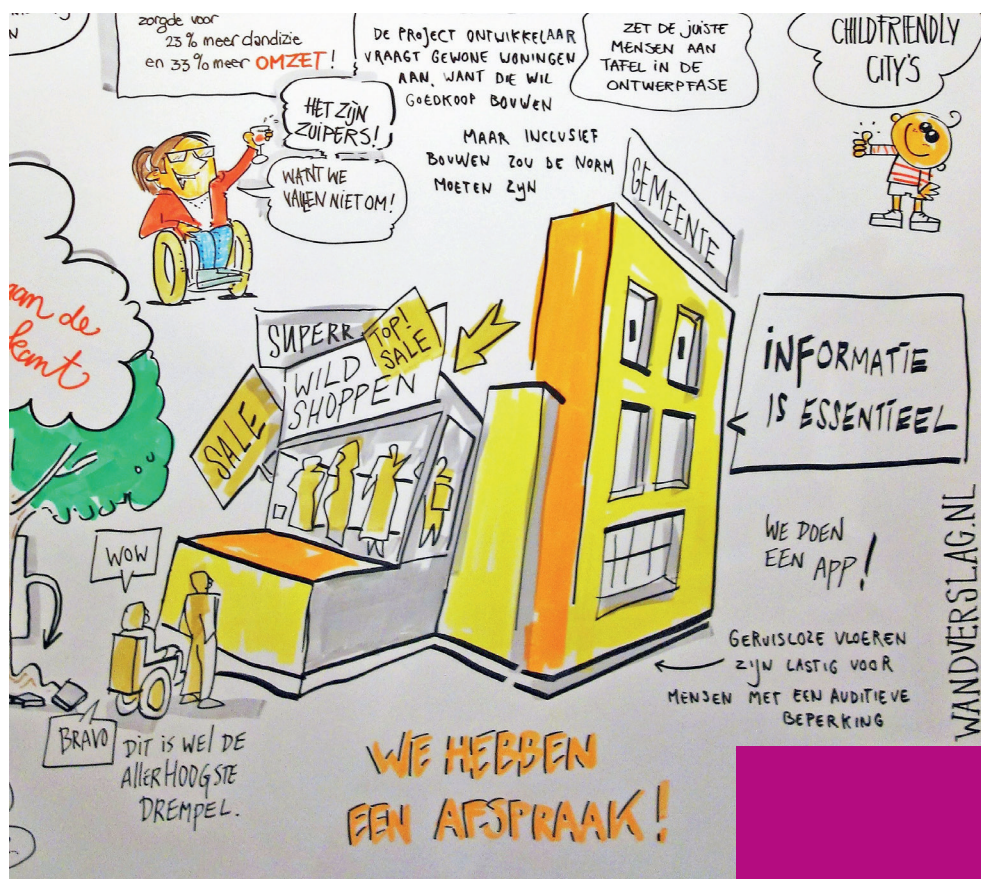 zorgde voor
23 % meer clandizie
en 33 % meer OMZET!
DE PROJECT ONTWIKKELAAR
VRAAGT GEWONE WONINGEN
AAN, WANT DIE WIL
GOEDKOOP BOUWEN
ZET DE JUISTE
MENSEN AAN
TAFEL IN DE
ONTWERPFASE
CHILDFRIENDLY
CITY'S
HET ZIJN
ZUIPERS!
WANT WE
VALLEN NIET OM!
MAAR INCLUSIEF
BOUWEN ZOU DE NORM
MOETEN ZIJN
GEMEENTE
aan de
kant
SUPERR
TOP!
SALE
WILD
SHOPPEN
SALE
INFORMATIE
IS ESSENTIEEL
WOW
WE DOEN
EEN APP!
GERUISLOZE VLOEREN
ZIJN LASTIG VOOR
MENSEN MET EEN AUDITIEVE
BEPERKING
WANDVERSLAG.NL
BRAVO
DIT IS WEL DE
ALLERHOOGSTE
DREMPEL.
WE HEBBEN
EEN AFSPRAAK!